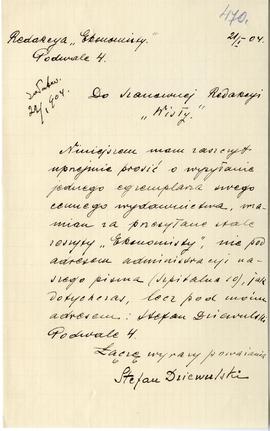 470.
Redakcya „Ekonomisty."
Podwale 4.
21/I - 04.
22/I 904.
Do Szanownej Redakcyi
„Wisły."
Niniejszem mam zaszczyt
uprzejmie prosić o wysyłanie
jednego egzemplarza swego
cennego wydawnictwa, wza-
mian za przesyłane stale
zeszyty „Ekonomisty", nie pod
adresem administracyi na-
szego pisma (Szpitalna 10), jak
dotychczas, lecz pod moim
adresem: Stefan Dziewulski
Podwale 4.
Łączę wyrazy poważania
Stefan Dziewulski